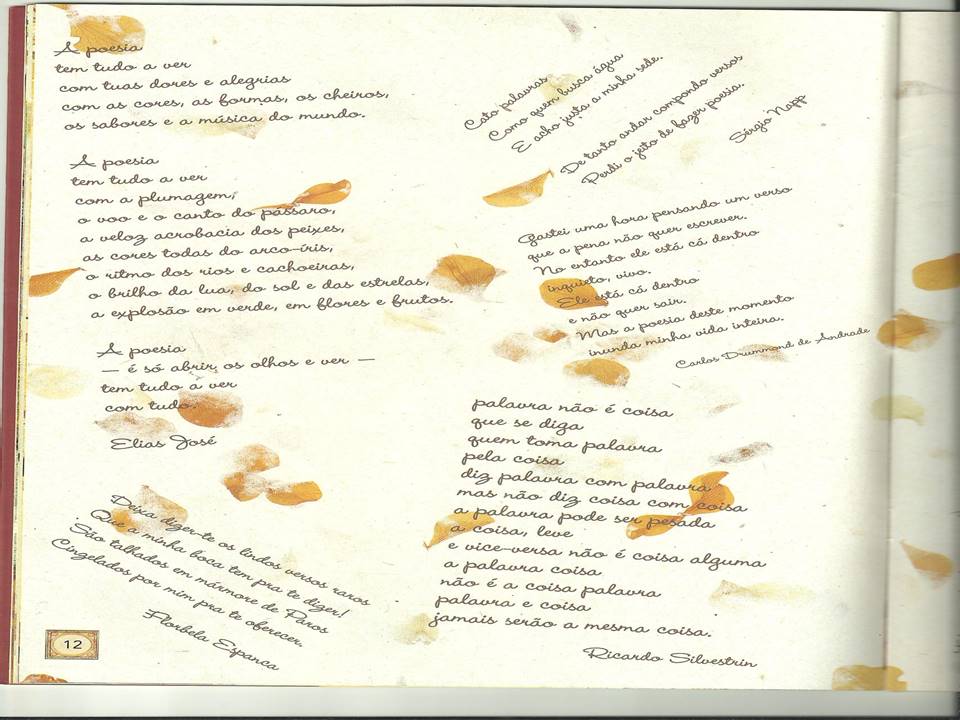 A poesia
tem tudo a ver
com tuas dores e alegrias
com as cores, as formas, os cheiros,
os sabores e a música do mundo.
A poesia
tem tudo a ver
com a plumagem,
o voo e o canto do pássaro,
a veloz acrobacia dos peixes,
as cores todas do arco-íris,
o ritmo dos rios e cachoeiras,
o brilho da lua, do sol e das estrelas,
a explosão em verde, em flores e frutos.
A poesia
— é só abrir os olhos e ver —
tem tudo a ver
com tudo.
Elias José
Deixa dizer-te os lindos versos raros
Que a minha boca tem pra te dizer!
São talhados em mármore de Paros
Cinzelados por mim pra te oferecer.
Florbela Espanca
12
Cato palavras
Como quem busca água
E acho justa a minha sede.
De tanto andar compondo versos
Perdi o jeito de fazer poesia.
Sérgio Napp
Gastei uma hora pensando um verso
que a pena não quer escrever.
No entanto ele está cá dentro
inquieto, vivo.
Ele está cá dentro
e não quer sair.
Mas a poesia deste momento
inunda minha vida inteira.
Carlos Drummond de Andrade
palavra não é coisa
que se diga
quem toma palavra
pela coisa
diz palavra com palavra
mas não diz coisa com coisa
a palavra pode ser pesada
a coisa, leve
e vice-versa não é coisa alguma
a palavra coisa
não é a coisa palavra
palavra e coisa
jamais serão a mesma coisa.
Ricardo Silvestrin